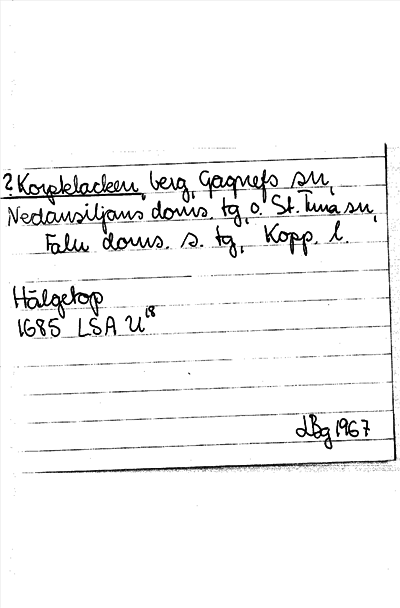 ? Korpklacken, berg, Gagnefs sn,
Nedansiljans doms. tg, o. St. Tuna sn,
Falu doms. s. tg, Kopp. l.
Hälgetop
1685 LSA U 18
LBg 1967